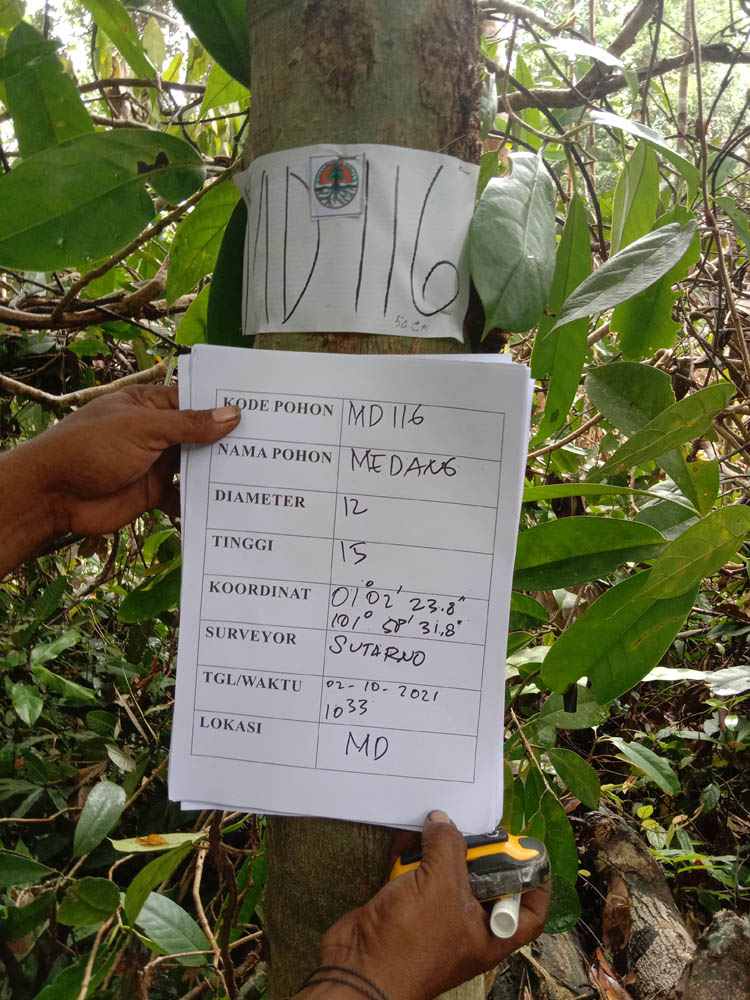 MD 116
50 cm
KODE POHON MD 116
NAMA POHON MEDANG
DIAMETER 12
TINGGI 15
KOORDINAT 01° 02' 23.8"
101° 58' 31.8"
SURVEYOR SUTARNO
TGL/WAKTU 02-10-2021
1033
LOKASI MD